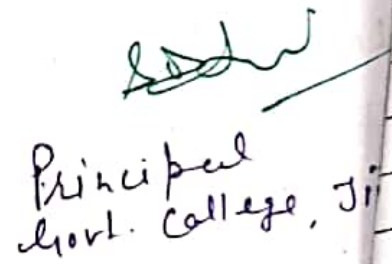 Principal
Govt. College, Ji